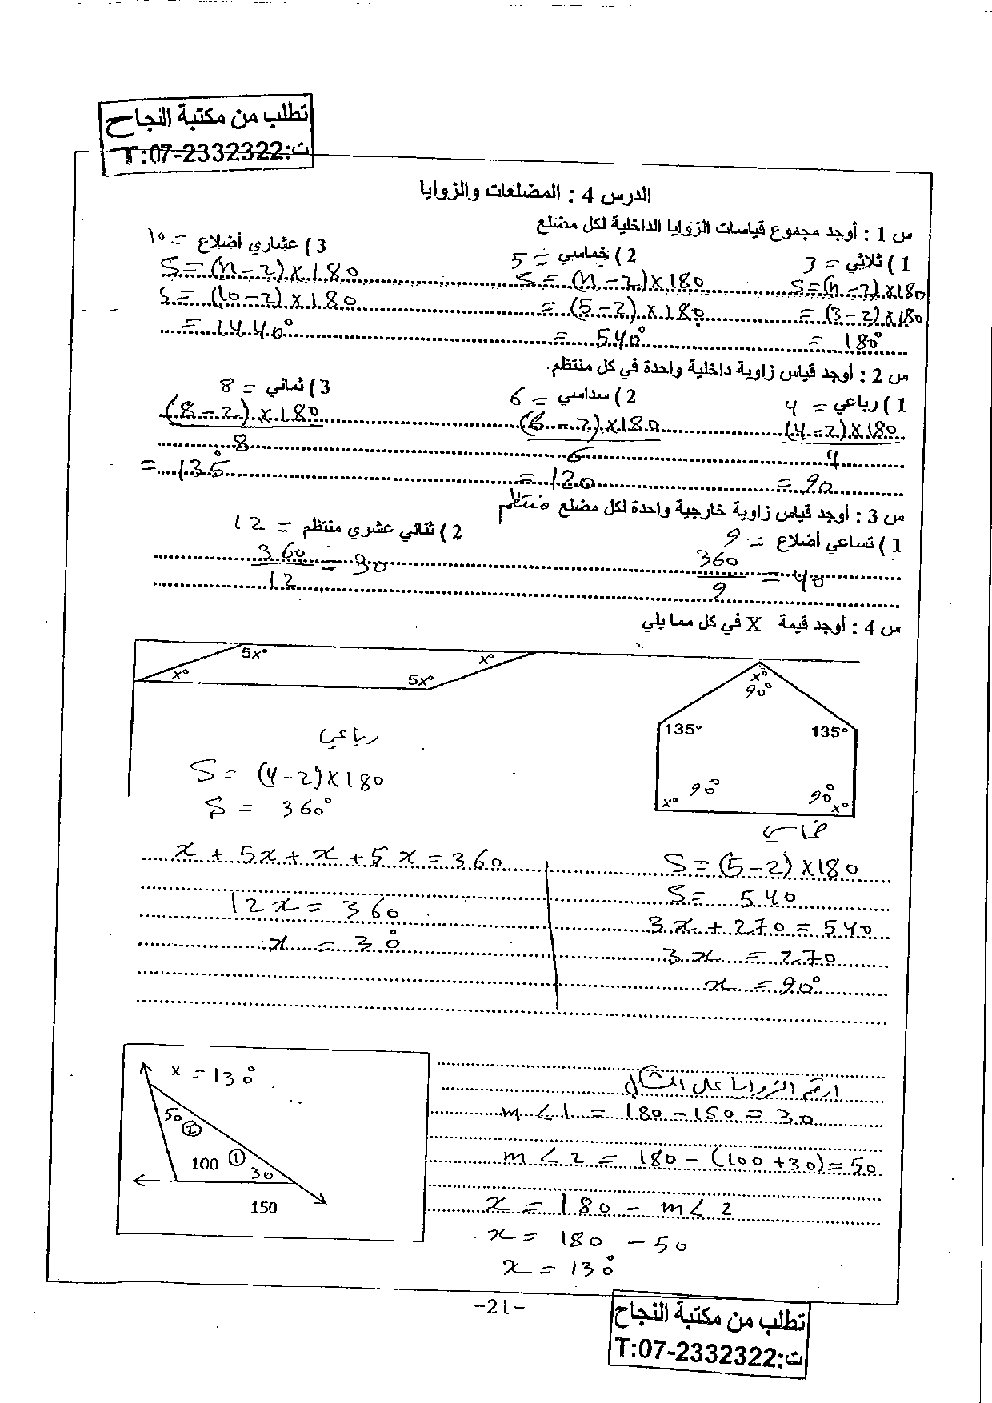 تطلب من مكتبة النجاح
ت:T:07-2332322
الدرس 4 : المضلعات والزوايا
س 1 : أوجد مجموع قياسات الزوايا الداخلية لكل مضلع
1 ) ثلاثي = 3
2 ) خماسي = 5
3 ) عشاري أضلاع = ١٠
S=(n-2)x180
S=(n-2)x180
S=(n-2)x180
= (3-2)x180
= (5-2)x180
S= (10-2)x180
= 180°
= 540°
= 1440°
س 2 : أوجد قياس زاوية داخلية واحدة في كل منتظم.
1 ) رباعي = 4
2 ) سداسي = 6
3 ) ثماني = 8
(4-2)x180
(6-2)x180
(8-2)x180
4
6
8
= 90
= 120
= 135°
س 3 : أوجد قياس زاوية خارجية واحدة لكل مضلع منتظم
1 ) تساعي أضلاع = 9
2 ) ثنائي عشري منتظم = 12
360 = 40
9
360 = 30
12
س 4 : أوجد قيمة X في كل مما يلي
5x°
x°
x°
5x°
x°
90°
135°
135°
90°
90°
x°
x°
رباعي
S= (4-2)x180
S= 360°
x + 5x + x + 5x = 360
12x = 360
x = 30°
خماسي
S=(5-2)x180
S= 540
3x + 270 = 540
3x = 270
x = 90°
x = 130°
50
②
100
①
30
150
ارقم الزوايا على الشكل
m∠1 = 180 - 150 = 30
m∠2 = 180 - (100+30)=50
x = 180 - m∠2
x = 180 - 50
x = 130°
-21-
تطلب من مكتبة النجاح
ت:T:07-2332322